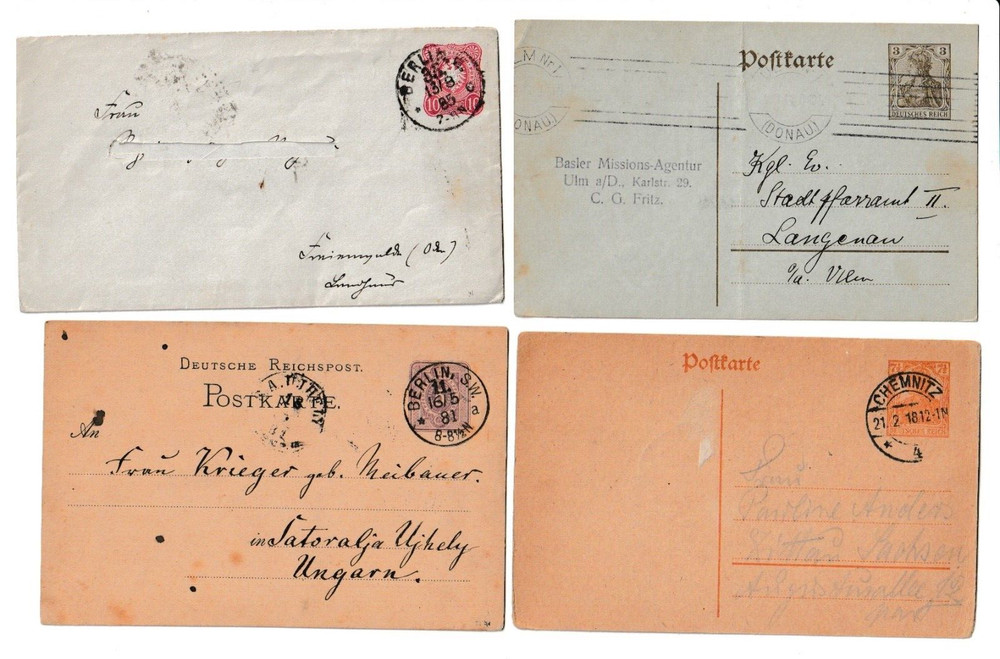 BERLIN
13/8
85
7-8N
10 10
Frau
Freienwalde (Oder)
Landhaus
M Nr 1
(DONAU)
Postkarte
(DONAU)
3 3
DEUTSCHES REICH
Basler Missions-Agentur
Ulm a/D., Karlstr. 29.
C. G. Fritz.
Kgl. Ev.
Stadtpfarramt II.
Langenau
o/a. Ulm
DEUTSCHE REICHSPOST.
POSTKARTE.
BERLIN, S.W.
11.
16/5
81
8-8½N
a
An
Frau Krieger geb. Neubauer.
in Satoralja Ujhely
Ungarn.
Postkarte
7½
CHEMNITZ
21.2.18.12-1N
* 4
Frau
Pauline Anders
Zittau Sachsen